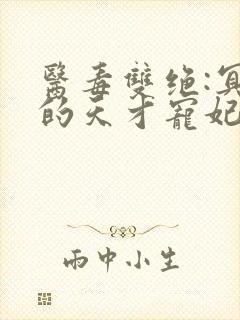 醫毒雙绝:冥
的天才寵妃
雨中小生